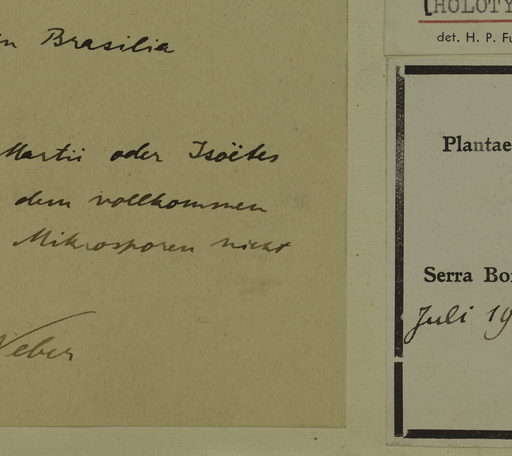 Brasilia
Martii oder Isoëtes
dem vollkommen
Mikrosporen nicht
Weber
[HOLOTY
det. H. P. Fu
Plantae
Serra Bo
Juli 19